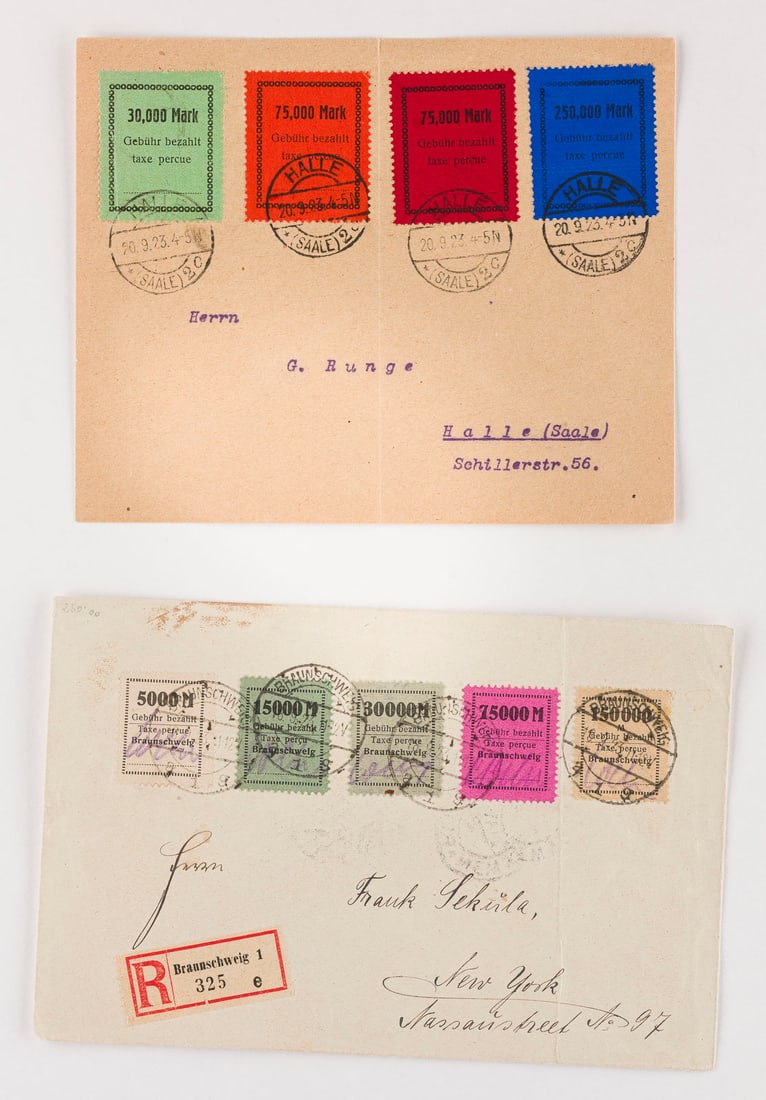 30,000 Mark
Gebühr bezahlt
taxe percue
75,000 Mark
Gebühr bezahlt
taxe percue
75,000 Mark
Gebühr bezahlt
taxe percue
250,000 Mark
Gebühr bezahlt
taxe percue
20.9.23.4-5N
*(SAALE)2c
HALLE
20.9.23.4-5N
*(SAALE)2c
HALLE
20.9.23.4-5N
*(SAALE)2c
HALLE
20.9.23.4-5N
*(SAALE)2c
Herrn
G. Runge
Halle (Saale)
Schillerstr.56.
250'00
5000 M
Gebühr bezahlt
Taxe perçue
Braunschweig
15000 M
Gebühr bezahlt
Taxe perçu
Braunschweig
30000 M
Gebühr bezahlt
Taxe perçue
Braunschweig
75000 M
Gebühr bezahlt
Taxe percue
Braunschweig
150000
Gebühr bezahlt
Taxe perçue
Braunschweig
BRAUNSCHWEIG
Herrn
Frank Sekula,
New York
Nassaustreet No 97
R
Braunschweig 1
325 e